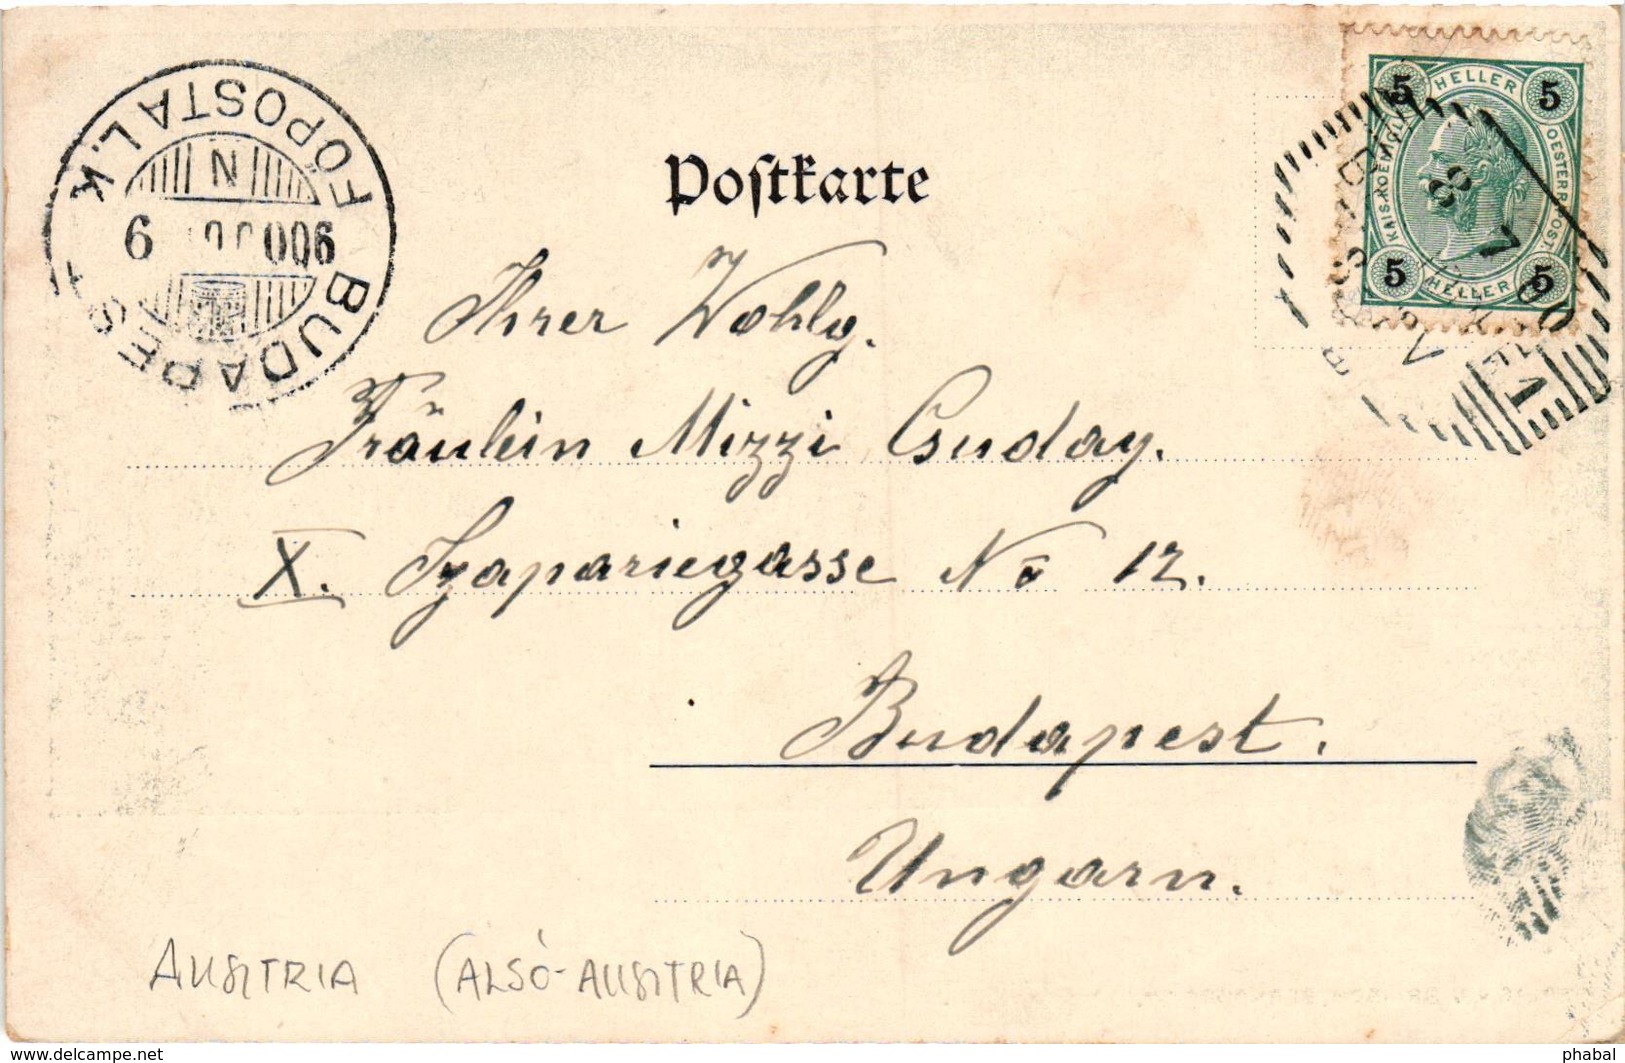 Postkarte
HELLER
5 5
KAIS. KOENIGL. OESTERR. POST.
5 5
HELLER
8 7 00
BUDAPEST
FŐPOSTA L.K
N
900 9
Ihrer Wohlg.
Fräulein Mizzi Csuday.
X. Szapariegasse No 12.
Budapest.
Ungarn.
AUSZTRIA (ALSÓ-AUSZTRIA)
www.delcampe.net
phabal